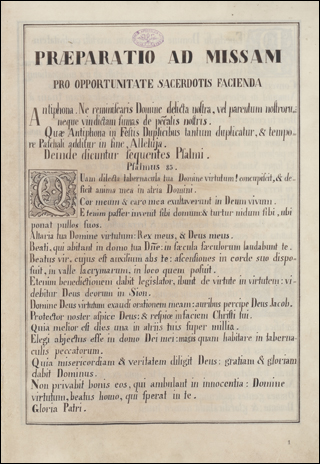 PRÆPARATIO AD MISSAM
PRO OPPORTUNITATE SACERDOTIS FACIENDA
Antiphona. Ne reminiscaris Domine delicta nostra, vel parentum nostrorū,
neque vindictam sumas de peccatis nostris.
Quæ Antiphona in Festis Duplicibus tantum duplicatur, & tempo,
re Paschali additur in fine, Alleluja.
Deinde dicuntur sequentes Psalmi.
Psalmus 83.
Quam dilecta tabernacula tua Domine virtutum! concupiscit, & de,
ficit anima mea in atria Domini.
Cor meum & caro mea exultaverunt in Deum vivum.
Etenim passer invenit sibi domum & turtur nidum sibi, ubi
ponat pullos suos.
Altaria tua Domine virtutum: Rex meus, & Deus meus.
Beati, qui abitant in domo tua Dñe: in sæcula sæculorum laudabunt te.
Beatus vir, cujus est auxilium abs te: ascensiones in corde suo dispo,
suit, in valle lacrymarum, in loco quem posuit.
Etenim benedictionem dabit legislator, ibunt de virtute in virtutem: vi,
debitur Deus deorum in Sion.
Domine Deus virtutum exaudi orationem meam: auribus percipe Deus Jacob.
Protector noster aspice Deus: & respice in faciem Christi tui.
Quia melior est dies una in atriis tuis super millia.
Elegi abjectus esse in domo Dei mei: magis quam habitare in taberna,
culis peccatorum.
Quia misericordiam & veritatem diligit Deus: gratiam & gloriam
dabit Dominus.
Non privabit bonis eos, qui ambulant in innocentia: Domine
virtutum, beatus homo, qui sperat in te.
Gloria Patri.
1